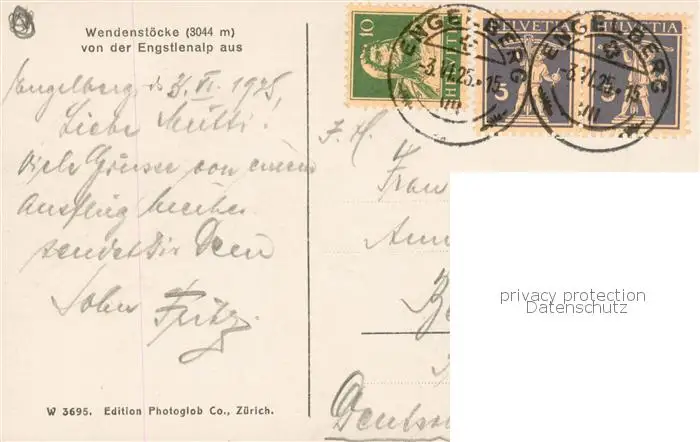 Wendenstöcke (3044 m)
von der Engstlenalp aus
Engelberg d. 3. VI. 1925.
Liebe Mutti!
Viele Grüsse von einem
Ausflug hierher
sendet Dir Dein
Sohn Fritz.
W 3695. Edition Photoglob Co., Zürich.
10
HELVETIA
5 HELVETIA
5 HELVETIA
ENGELBERG
3.VI.25.-15
ENGELBERG
3.VI.25.-15
Frau
privacy protection
Datenschutz